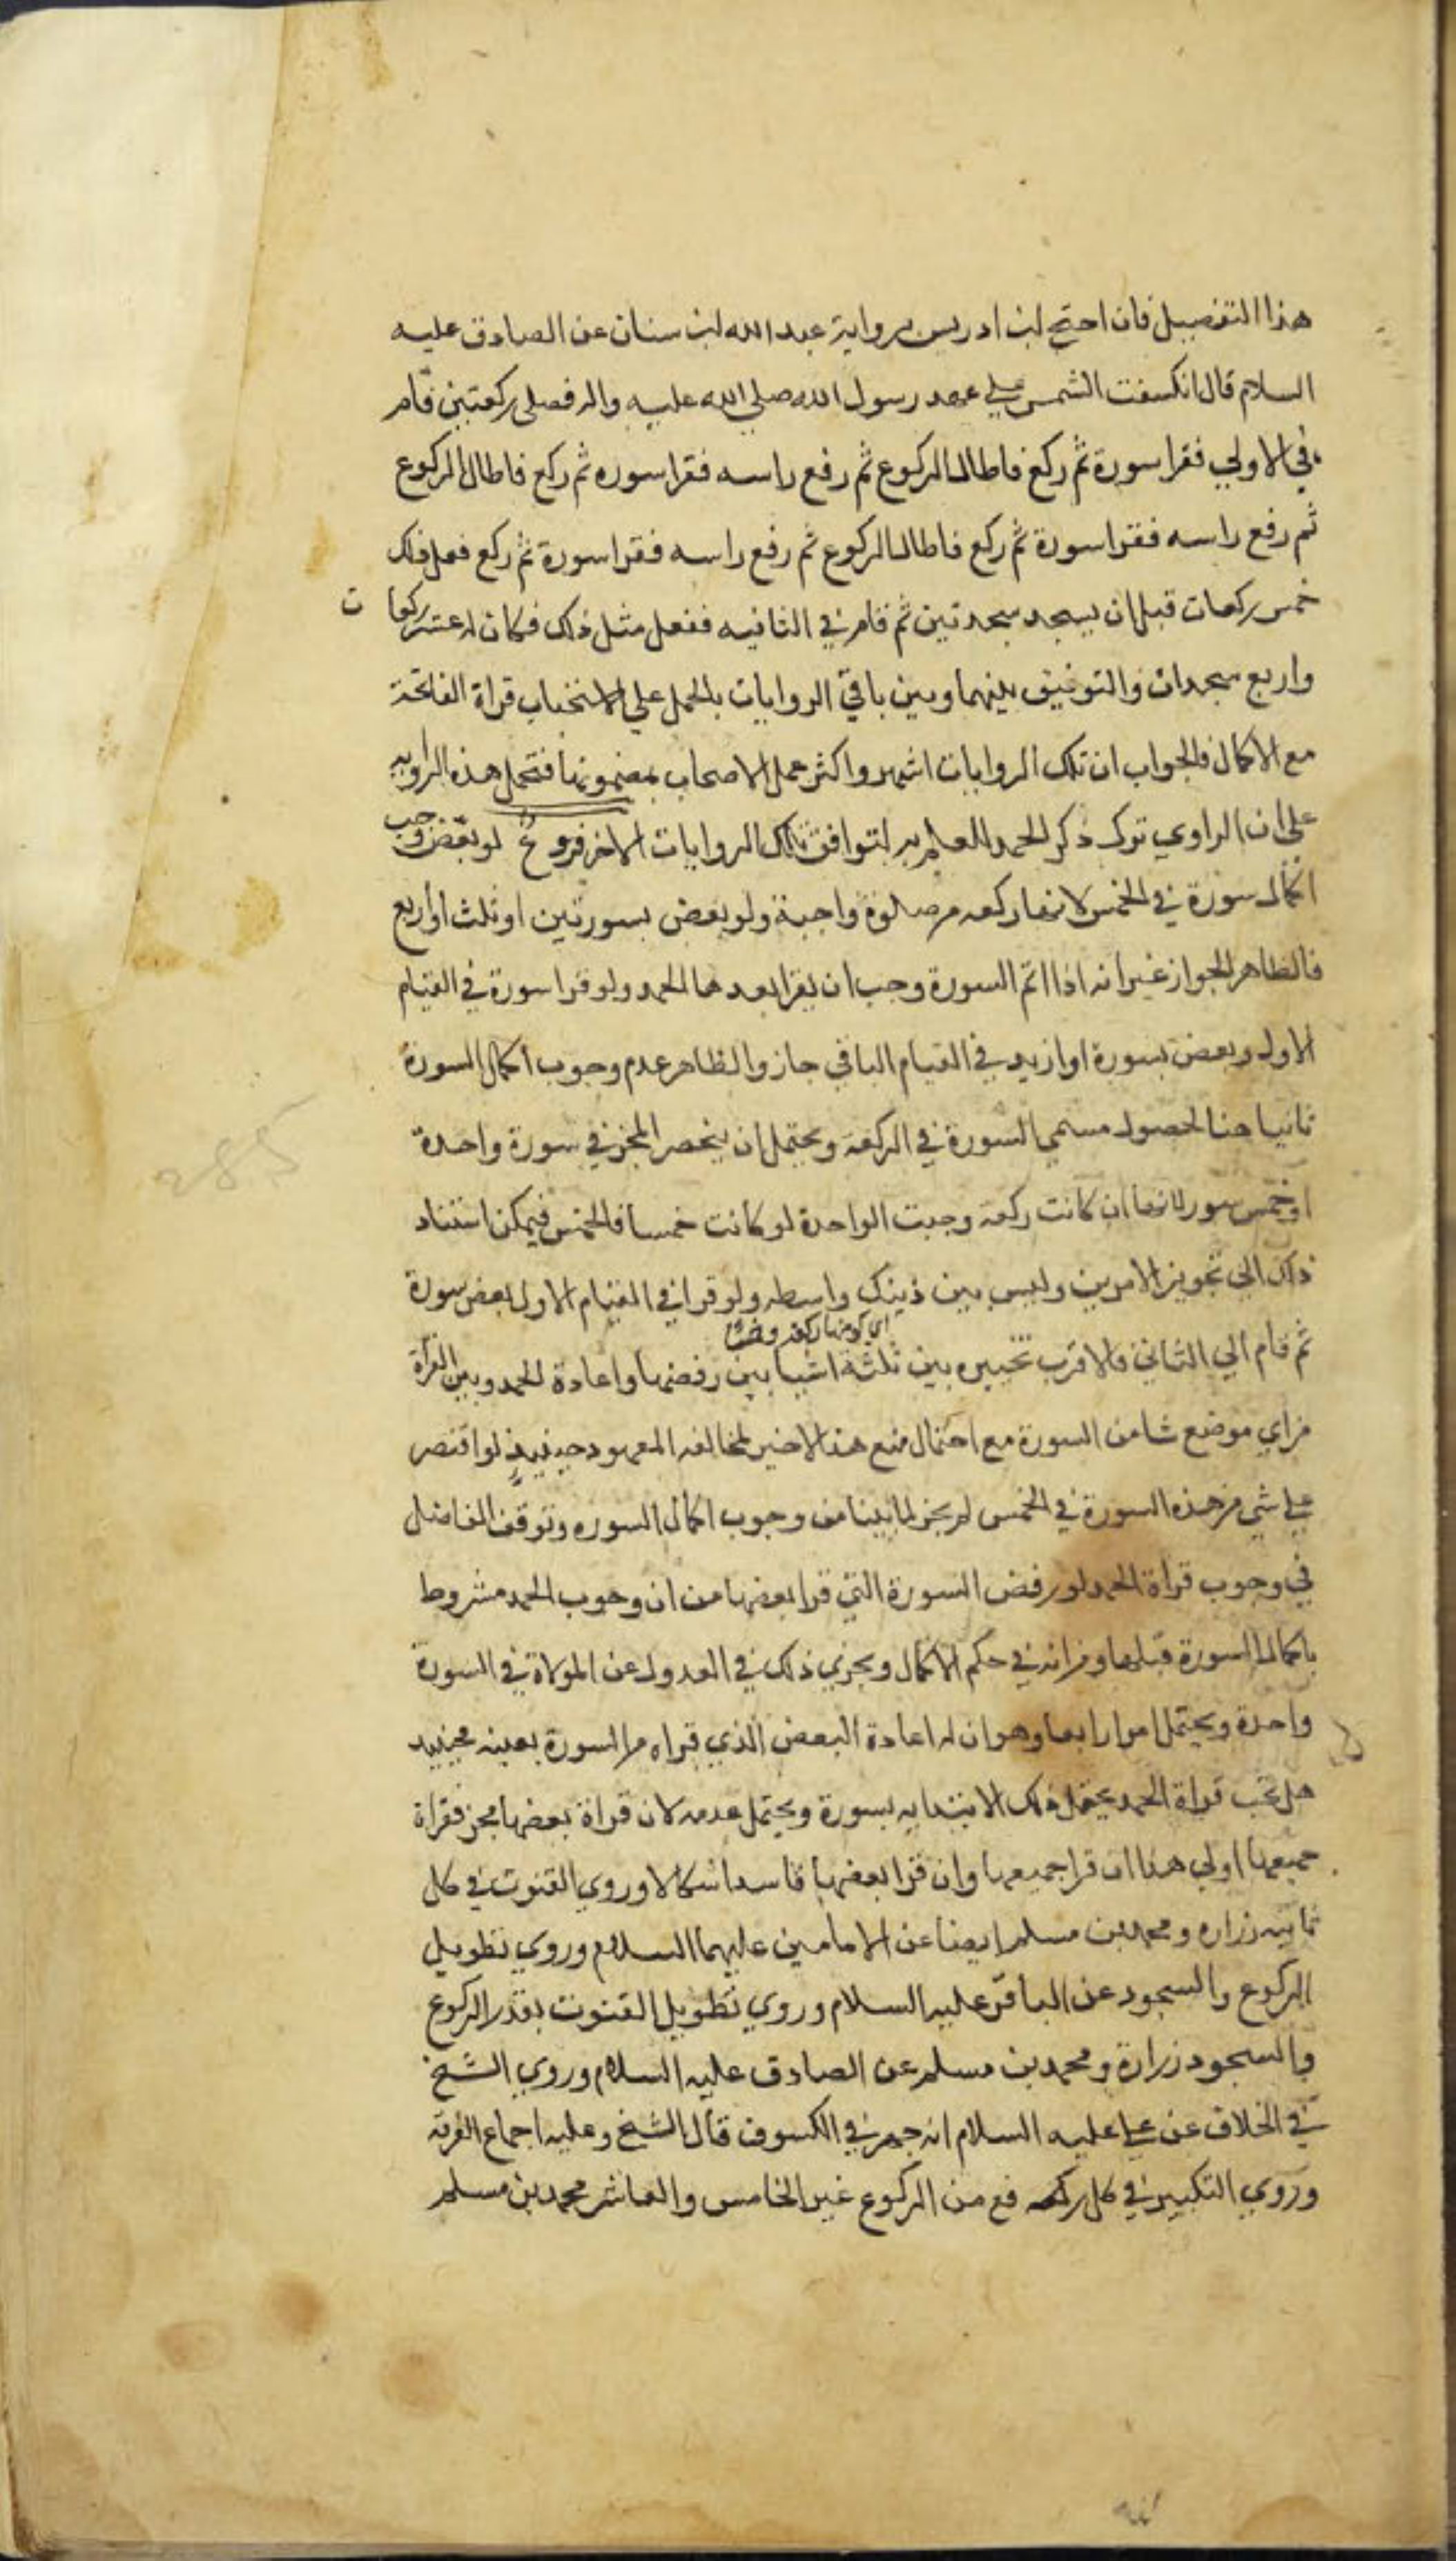 هذا التفصيل فان احتج ابن ادريس برواية عبد الله ابن سنان عن الصادق عليه
السلام قال انكسفت الشمس علي عهد رسول الله صلي الله عليه واله فصلى ركعتين قام
في الاولي فقرا سورة ثم ركع فاطال الركوع ثم رفع راسه فقرا سوره ثم ركع فاطال الركوع
ثم رفع راسه فقرا سورة ثم ركع فاطال الركوع ثم رفع راسه فقرا سورة ثم ركع فعل ذلك
خمس ركعات قبل ان يسجد سجدتين ثم قام في الثانيه ففعل مثل ذلك فكان له عشر ركعات
واربع سجدات والتوفيق بينهما وبين باقي الروايات بالحمل علي الاستحباب قراة الفاتحة
مع الاكمال فالجواب ان تلك الروايات اشهر واكثر عمل الاصحاب بمضمونها فتحمل هذه الراويه
على ان الراوي ترك ذكر الحمد للعلم به لتوافق تلك الروايات الاخر فروع لو بعض وجب
اكمال سورة في الخمس لانها ركعه من صلوة واجبة ولو بعض بسورتين او ثلث او اربع
فالظاهر الجواز غير انه اذا اتم السورة وجب ان يقرا بعدها الحمد ولو قرا سورة في القيام
الاول وبعض بسورة او ازيد في القيام الباقي جاز والظاهر عدم وجوب اكمال السورة
ثانيا هنا لحصول مسمي السورة في الركعة ويحتمل ان ينحصر المجزي في سورة واحدة
او خمس سور لانها ان كانت ركعة وجبت الواحدة لو كانت خمسا فالخمس فيمكن استناد
ذلك الي تجويز الامرين وليس بين ذينك واسطه ولو قرا في القيام الاول بعض سورة
اي كونها ركعة وخمسا
ثم قام الي الثاني فالاقرب تخييره بين ثلثة اشيا بين رفضها واعادة الحمد وبين القرأة
من اي موضع شا من السورة مع احتمال منع هذا الاخير لمخالفه المعهود حينيذ لو اقتصر
علي شي من هذه السورة في الخمس لم يجز لما بينا من وجوب اكمال السوره وتوقف الفاضل
في وجوب قراة الحمد لو رفض السورة التي قرا بعضها من ان وجوب الحمد مشروط
باكمال السورة قبلها ومن انه في حكم الاكمال ويجزي ذلك في العدول عن الموالاة في السورة
واحدة ويحتمل امرا رابعا وهو ان له اعادة البعض الذي قراه من السورة بعينه فحينيذ
هل تجب قراة الحمد يحتمل ذلك لابتدايه بسورة ويحتمل عدمه لان قراة بعضها مجز فقراة
جميعها اولي هذا ان قرا جميعها وان قرا بعضها فاشد اشكالا وروي القنوت في كل
ثانيه زراره ومحمد بن مسلم ايضا عن الامامين عليهما السلام وروي تطويل
الركوع والسجود عن الباقر عليه السلام وروي تطويل القنوت بقدر الركوع
والسجود زرارة ومحمد بن مسلم عن الصادق عليه السلام وروي الشيخ
في الخلاف عن علي عليه السلام انه جهر في الكسوف قال الشيخ وعليه اجماع الفرقة
وروي التكبير في كل رفع من الركوع غير الخامس والعاشر محمد بن مسلم